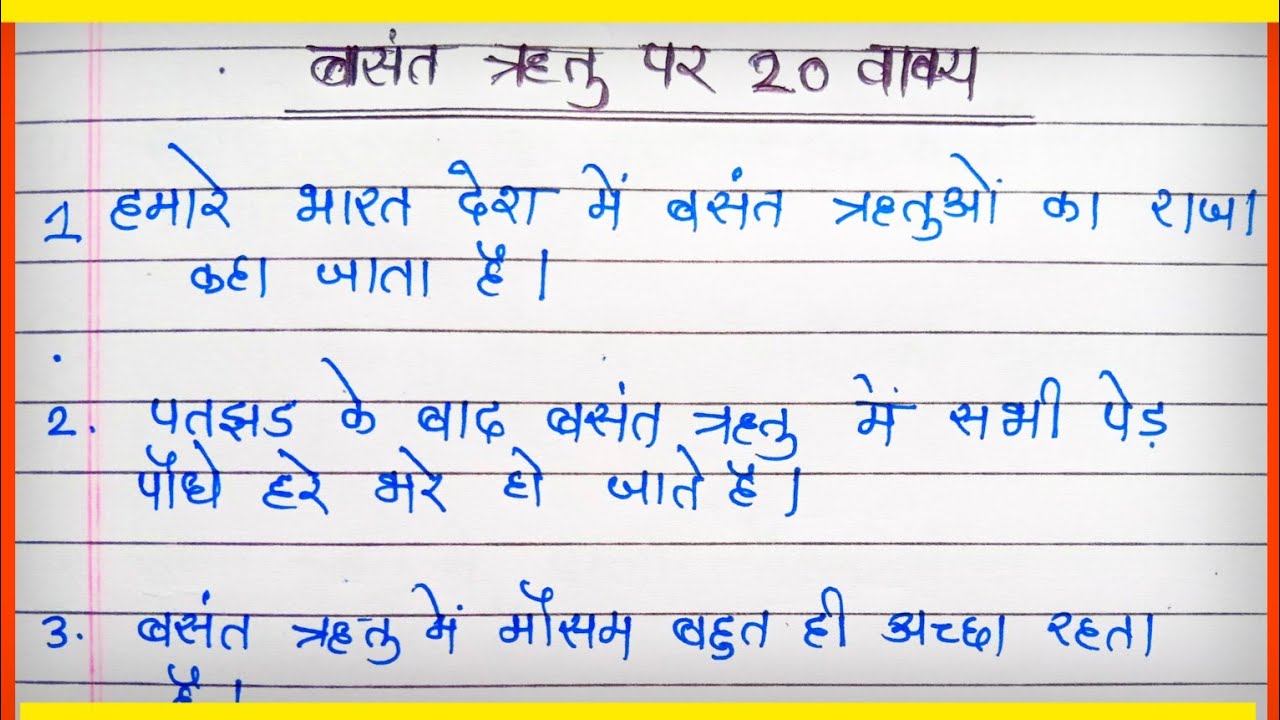 बसंत ऋतु पर 20 वाक्य
1 हमारे भारत देश में बसंत ऋतुओं का राजा
कहा जाता है।
2. पतझड के बाद बसंत ऋतु में सभी पेड़
पौधे हरे भरे हो जाते है।
3. बसंत ऋतु में मौसम बहुत ही अच्छा रहता
है।